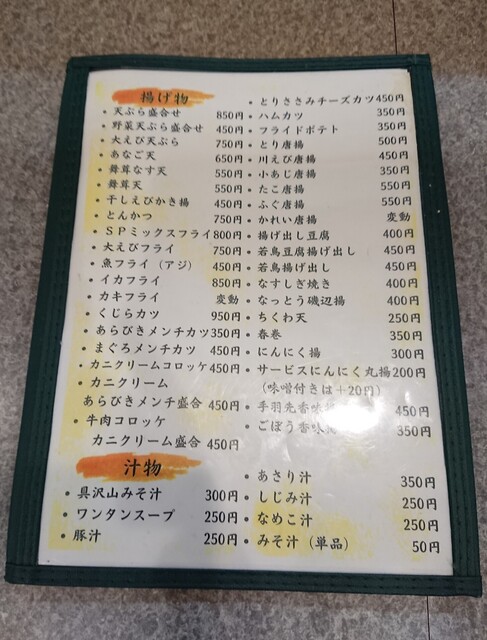 揚げ物
・天ぷら盛合せ 850円
・野菜天ぷら盛合せ 450円
・大えび天ぷら 750円
・あなご天 650円
・舞茸なす天 550円
・舞茸天 550円
・干しえびかき揚 450円
・とんかつ 750円
・ＳＰミックスフライ 800円
・大えびフライ 750円
・魚フライ（アジ） 450円
・イカフライ 850円
・カキフライ 変動
・くじらカツ 950円
・あらびきメンチカツ 350円
・まぐろメンチカツ 450円
・カニクリームコロッケ 450円
・カニクリーム
あらびきメンチ盛合 450円
・牛肉コロッケ
カニクリーム盛合 450円
・とりささみチーズカツ 450円
・ハムカツ 350円
・フライドポテト 350円
・とり唐揚 500円
・川えび唐揚 450円
・小あじ唐揚 350円
・たこ唐揚 550円
・ふぐ唐揚 550円
・かれい唐揚 変動
・揚げ出し豆腐 400円
・若鳥豆腐揚げ出し 450円
・若鳥揚げ出し 450円
・なすしぎ焼き 400円
・なっとう磯辺揚 400円
・ちくわ天 250円
・春巻 350円
・にんにく揚 300円
・サービスにんにく丸揚 200円
（味噌付きは＋20円）
・手羽先香味揚 450円
・ごぼう香味揚 350円
汁物
・具沢山みそ汁 300円
・ワンタンスープ 250円
・豚汁 250円
・あさり汁 350円
・しじみ汁 250円
・なめこ汁 250円
・みそ汁（単品） 50円